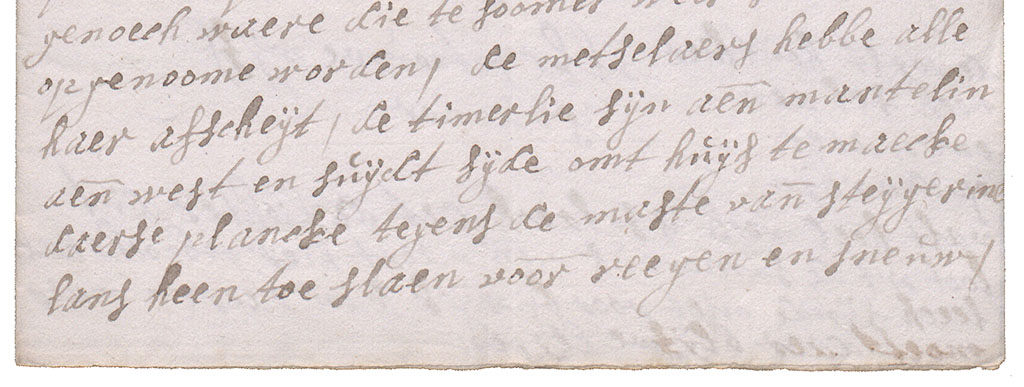 genoech waere die te soomer
opgenoome worden, de metselaers hebbe alle
haer afscheijt, de timerlie sijn aen mantelin
aen west en suijdt sijde omt huijs te maecke
daerse plancke tegens de maste van steijgerin
lans heen toe slaen voor reegen en sneuw,